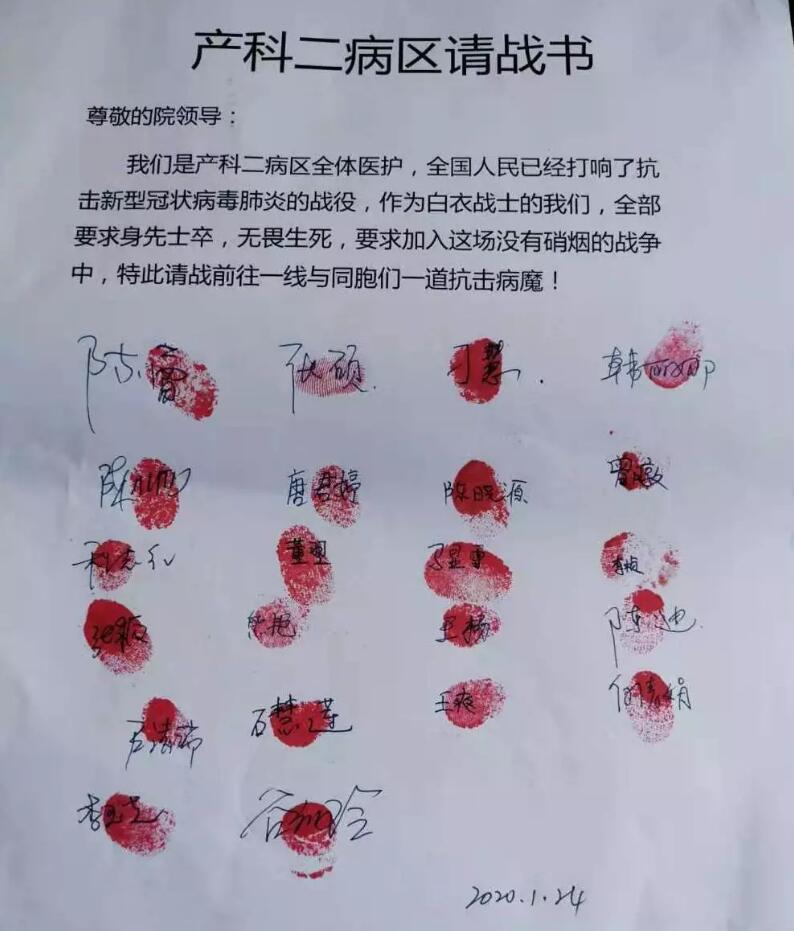 产科二病区请战书
尊敬的院领导：
我们是产科二病区全体医护，全国人民已经打响了抗
击新型冠状病毒肺炎的战役，作为白衣战士的我们，全部
要求身先士卒，无畏生死，要求加入这场没有硝烟的战争
中，特此请战前往一线与同胞们一道抗击病魔！
张硕
唐君婷 陈晓源
董理
王杨 陈迪
石慧莲 王爽
2020.1.24